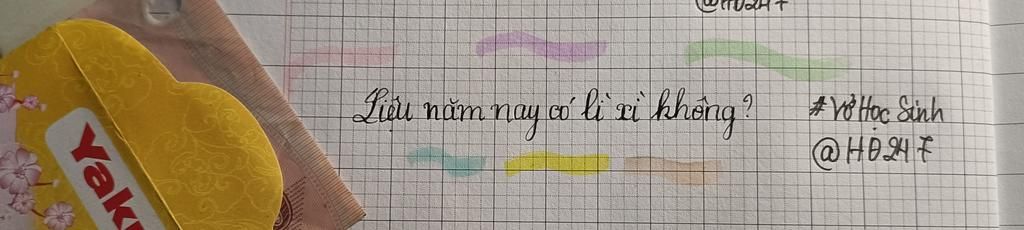 @HĐ24F
Liệu năm nay có lì xì không?
#VởHọcSinh
@HĐ24F
Yak